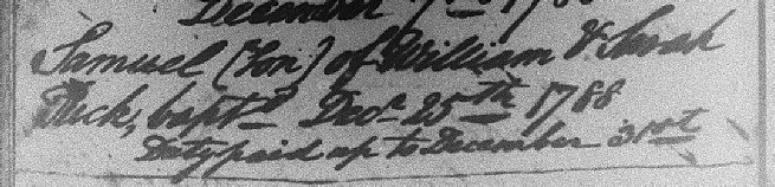 December 17
Samuel (Son) of William & Sarah
Duck, bapt.d Dec.r 25th 1788
Duty paid up to December 31st